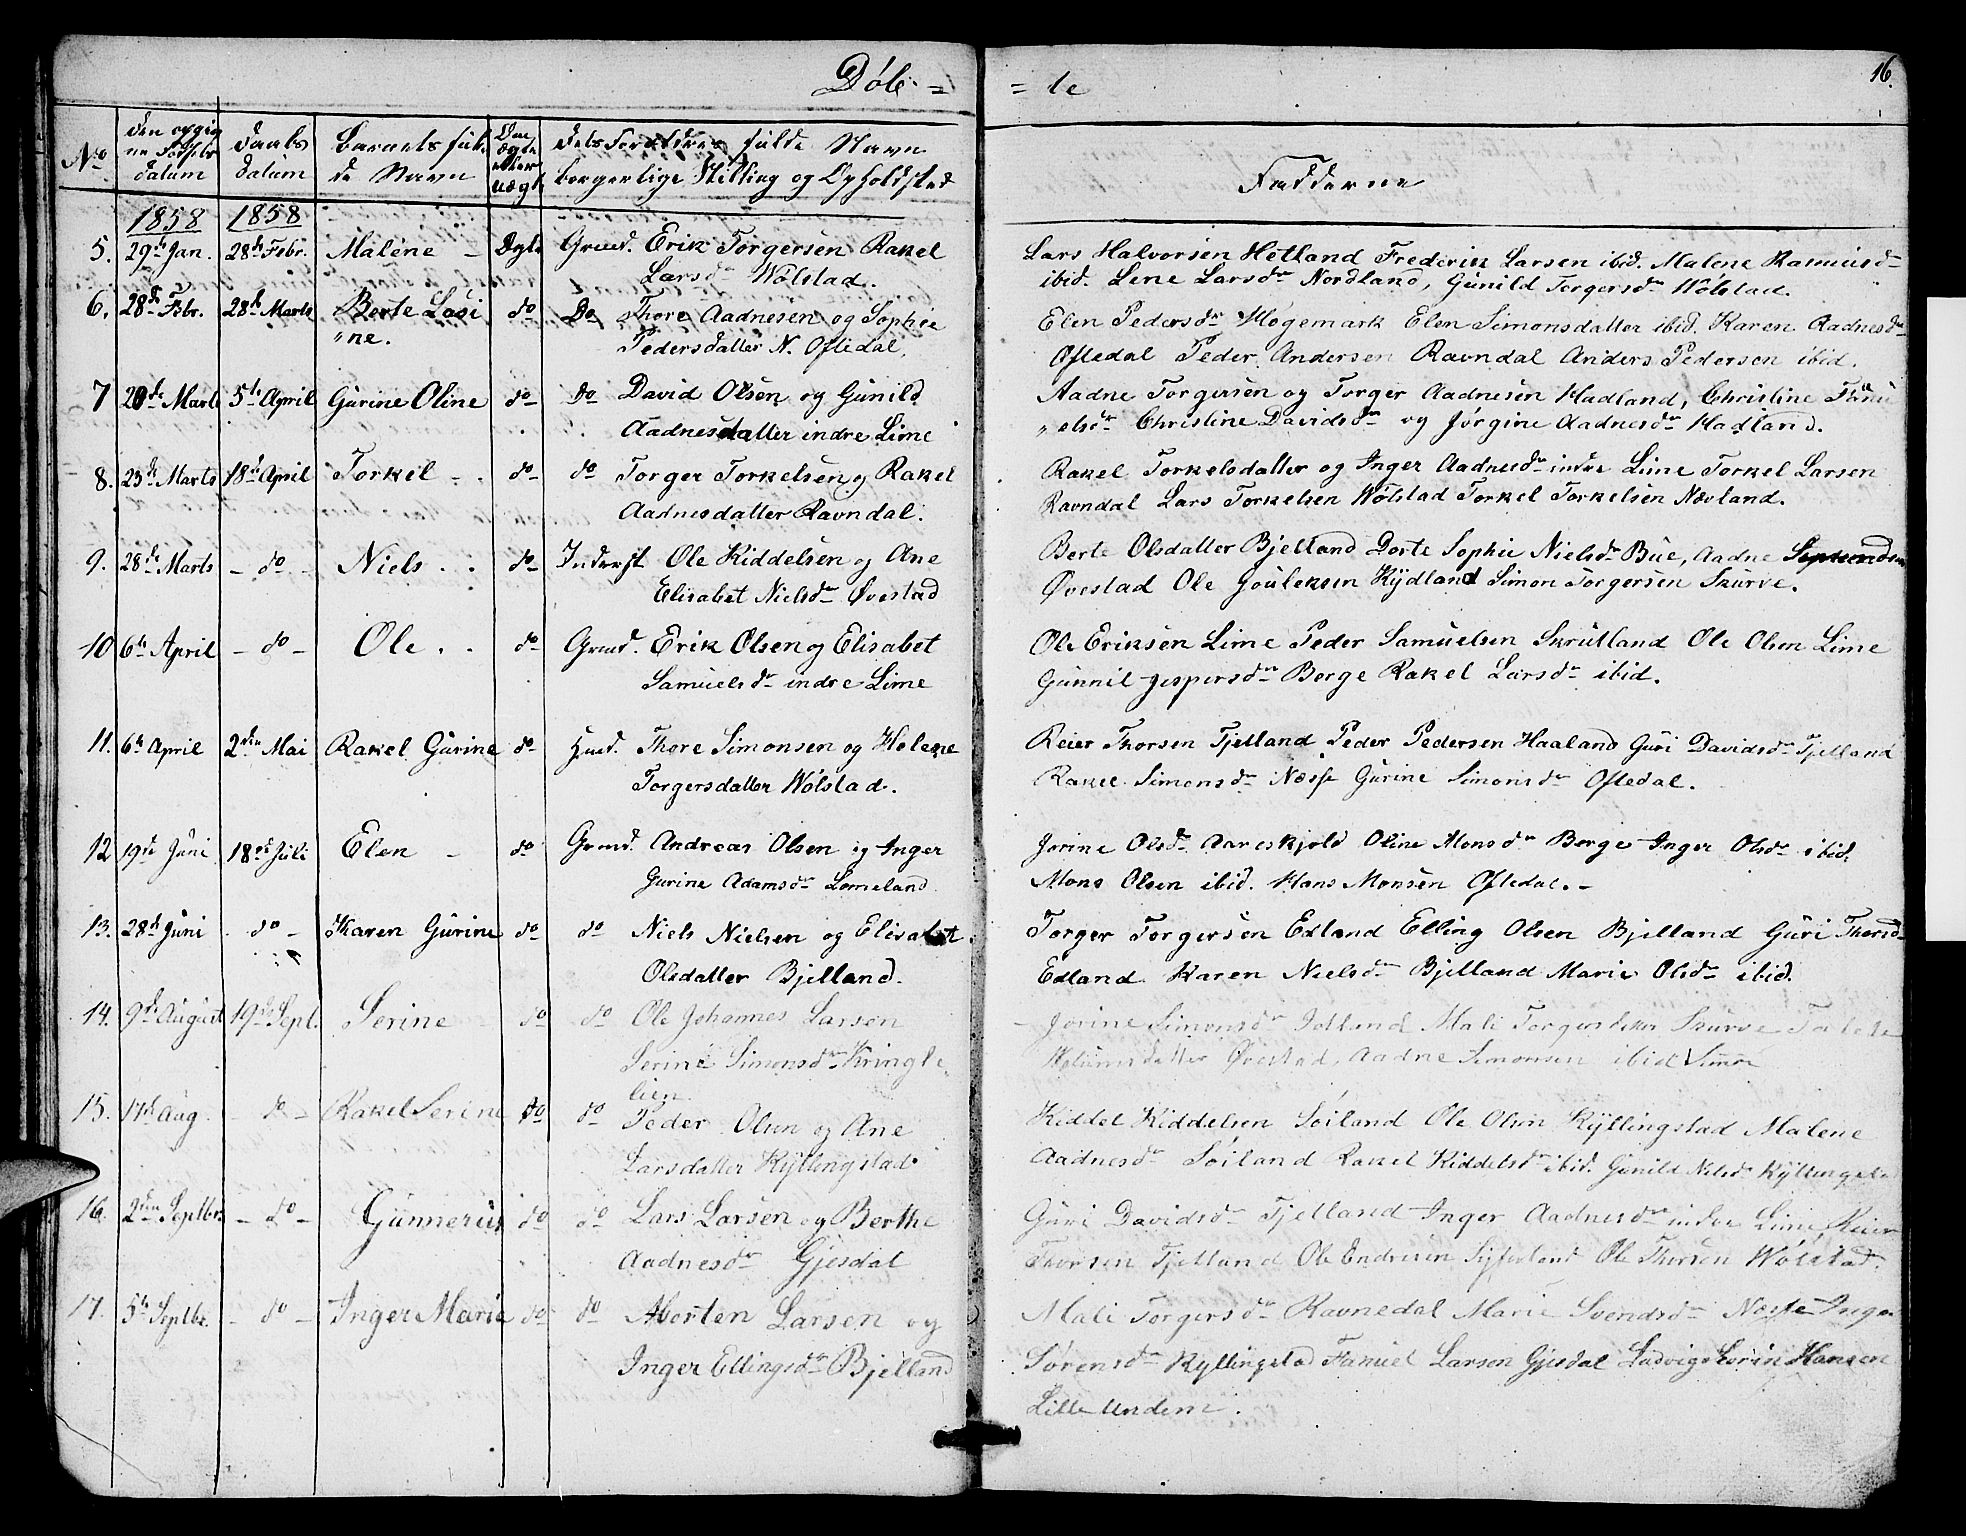 Døb- = = te 16.
No den opgivne Fødsels datum Daabs datum Barnets fulde Navn Om ægte eller uægte dets Forældres fulde Navn borgerlige Stilling og Opholdsted Fadderne
1858 1858
5. 29de Jan. 28de Febr. Maléne - Ægte Grmd. Erik Torgersen Rakel
Larsdr Wölstad.
Lars Halvorsen Hetland Frederik Larsen ibid. Malene Rasmusdr
ibid. Lene Larsdr Nordland, Gunild Torgersdr Wölstad.
6. 28de Febr. 28de Marts Berte Lovi
"ne. do Do Thore Aadnesen og Sophie
Pedersdatter N. Oftedal.
Elen Pedersdr Høgemark Elen Simonsdatter ibid. Karen Aadnesdr
Oftedal Peder Andersen Ravndal Anders Pedersen ibid.
7 20de Marts 5te April Gurine Oline do do David Olsen og Gunild
Aadnesdatter indre Lime
Aadne Torgersen og Torger Aadnesen Hadland, Christine
" elsdr Christine Davidsdr og Jørgine Aadnesdr Hadland.
8. 23de Marts 18de April Torkel - . do do Torger Torkelsen og Rakel
Aadnesdatter Ravndal.
Rakel Torkelsdatter og Inger Aadnesdr indre Lime Torkel Larsen
Ravndal Lars Torkelsen Wölstad Torkel Torkelsen Nævland.
9. 28de Marts - do - Niels . . do Inderst Ole Kiddelsen og Ane
Elisabet Nielsdr Øvestad
Berte Olsdatter Bjelland Dorte Sophie Nielsdr Bue, Aadne
Øvestad Ole Gouleksen Kydland Simon Torgersen Skurve.
10 6te April - do - Ole . . do Grmd. Erik Olsen og Elisabet
Samuelsdr indre Lime
Ole Eriksen Lime Peder Samuelsen Skrutland Ole Olsen Lime
Gunnil Jespersdr Berge Rakel Larsdr ibid.
11. 6te April 2den Mai Rakel Gurine do Hmd. Thore Simonsen og Helene
Torgersdatter Wölstad.
Reier Thorsen Fjelland Peder Pedersen Haaland Guri Davidsdr Fjelland
Rakel Simonsdr Næsse Gurine Simonsdr Oftedal.
12 19de Juni 18de Juli Elen - do Grmd. Andreas Olsen og Inger
Gurine Adamsdr Lomeland
Jorine Olsdr Aareskjold Oline Monsdr Berge Inger Olsdr ibid.
Mons Olsen ibid. Hans Monsen Oftedal. -
13. 28de Juni - do - Karen Gurine do do Niels Nielsen og Elisabet
Olsdatter Bjelland.
Torger Torgersen Edland Elling Olsen Bjelland Guri Thorsdr
Edland Karen Nielsdr Bjelland Marie Olsdr ibid.
14. 9de August 19de Sept. Serine do do Ole Johannes Larsen
Serine Simonsdr Kringle
lien
Jorine Simonsdr Mali Torgersdatter Skurve
Øvestad, Aadne Simonsen ibid
15. 17de Aug. - do - Rakel Serine do do Peder Olsen og Ane
Larsdatter Kyllingstad
Kiddel Kiddelsen Söiland Ole Olsen Kyllingstad Malene
Aadnesdr Söiland Rakel Kiddelsdr ibid. Gunild Nelsdr Kyllingst
16. 2den Septbr. - do - Gunnerius do do Lars Larsen og Berthe
Aadnesdr Gjesdal
Guri Davidsdr Fjelland Inger Aadnesdr indre Lime, Reier
Thorsen Fjelland Ole Endresen Ole Thorsen Wölstad.
17. 5te Septbr. - do - Inger Marie do do Morten Larsen og
Inger Ellingsdr Bjelland
Mali Torgersdr Ravnedal Marie Svendsdr Næsse Inger
Sørensdr Kyllingstad Larsen Gjesdal Ludvig Hansen
Lille